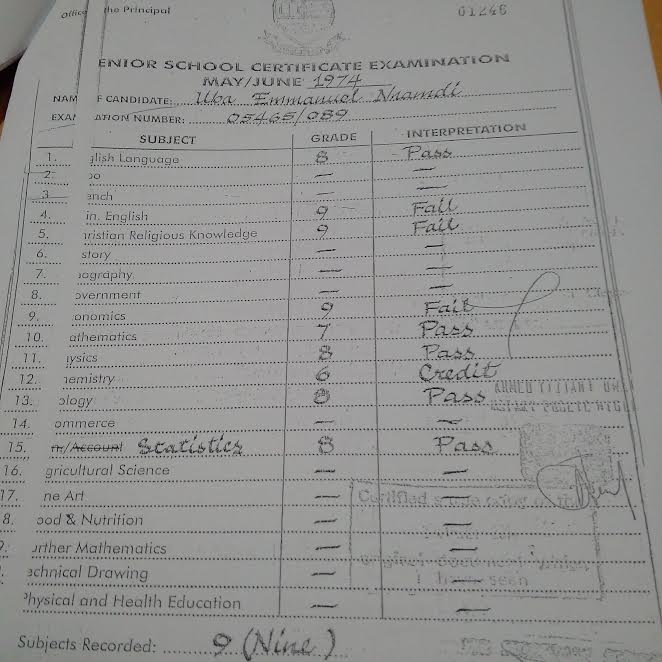 Office the Principal 01248
ENIOR SCHOOL CERTIFICATE EXAMINATION
MAY/JUNE 1974
NAM F CANDIDATE: Uba Emmanuel Nnamdi
EXAM ATION NUMBER: 05465/089
SUBJECT GRADE INTERPRETATION
1. glish Language 8 Pass
2. bo — —
3. ench — —
4. in. English 9 Fail
5. hristian Religious Knowledge 9 Fail
6. story — —
7. ography — —
8. overnment — —
9. onomics 9 Fail
10. athematics 7 Pass
11. ysics 8 Pass
12. hemistry 6 Credit
13. ology 8 Pass
14. ommerce — —
15. n./Account Statistics 8 Pass
16. gricultural Science — —
17. ne Art — —
8. ood & Nutrition — —
9. urther Mathematics — —
echnical Drawing — —
Physical and Health Education — —
Subjects Recorded: 9 (Nine)
Certified true copy of the
original document which
I have seen
NOTARY PUBLIC